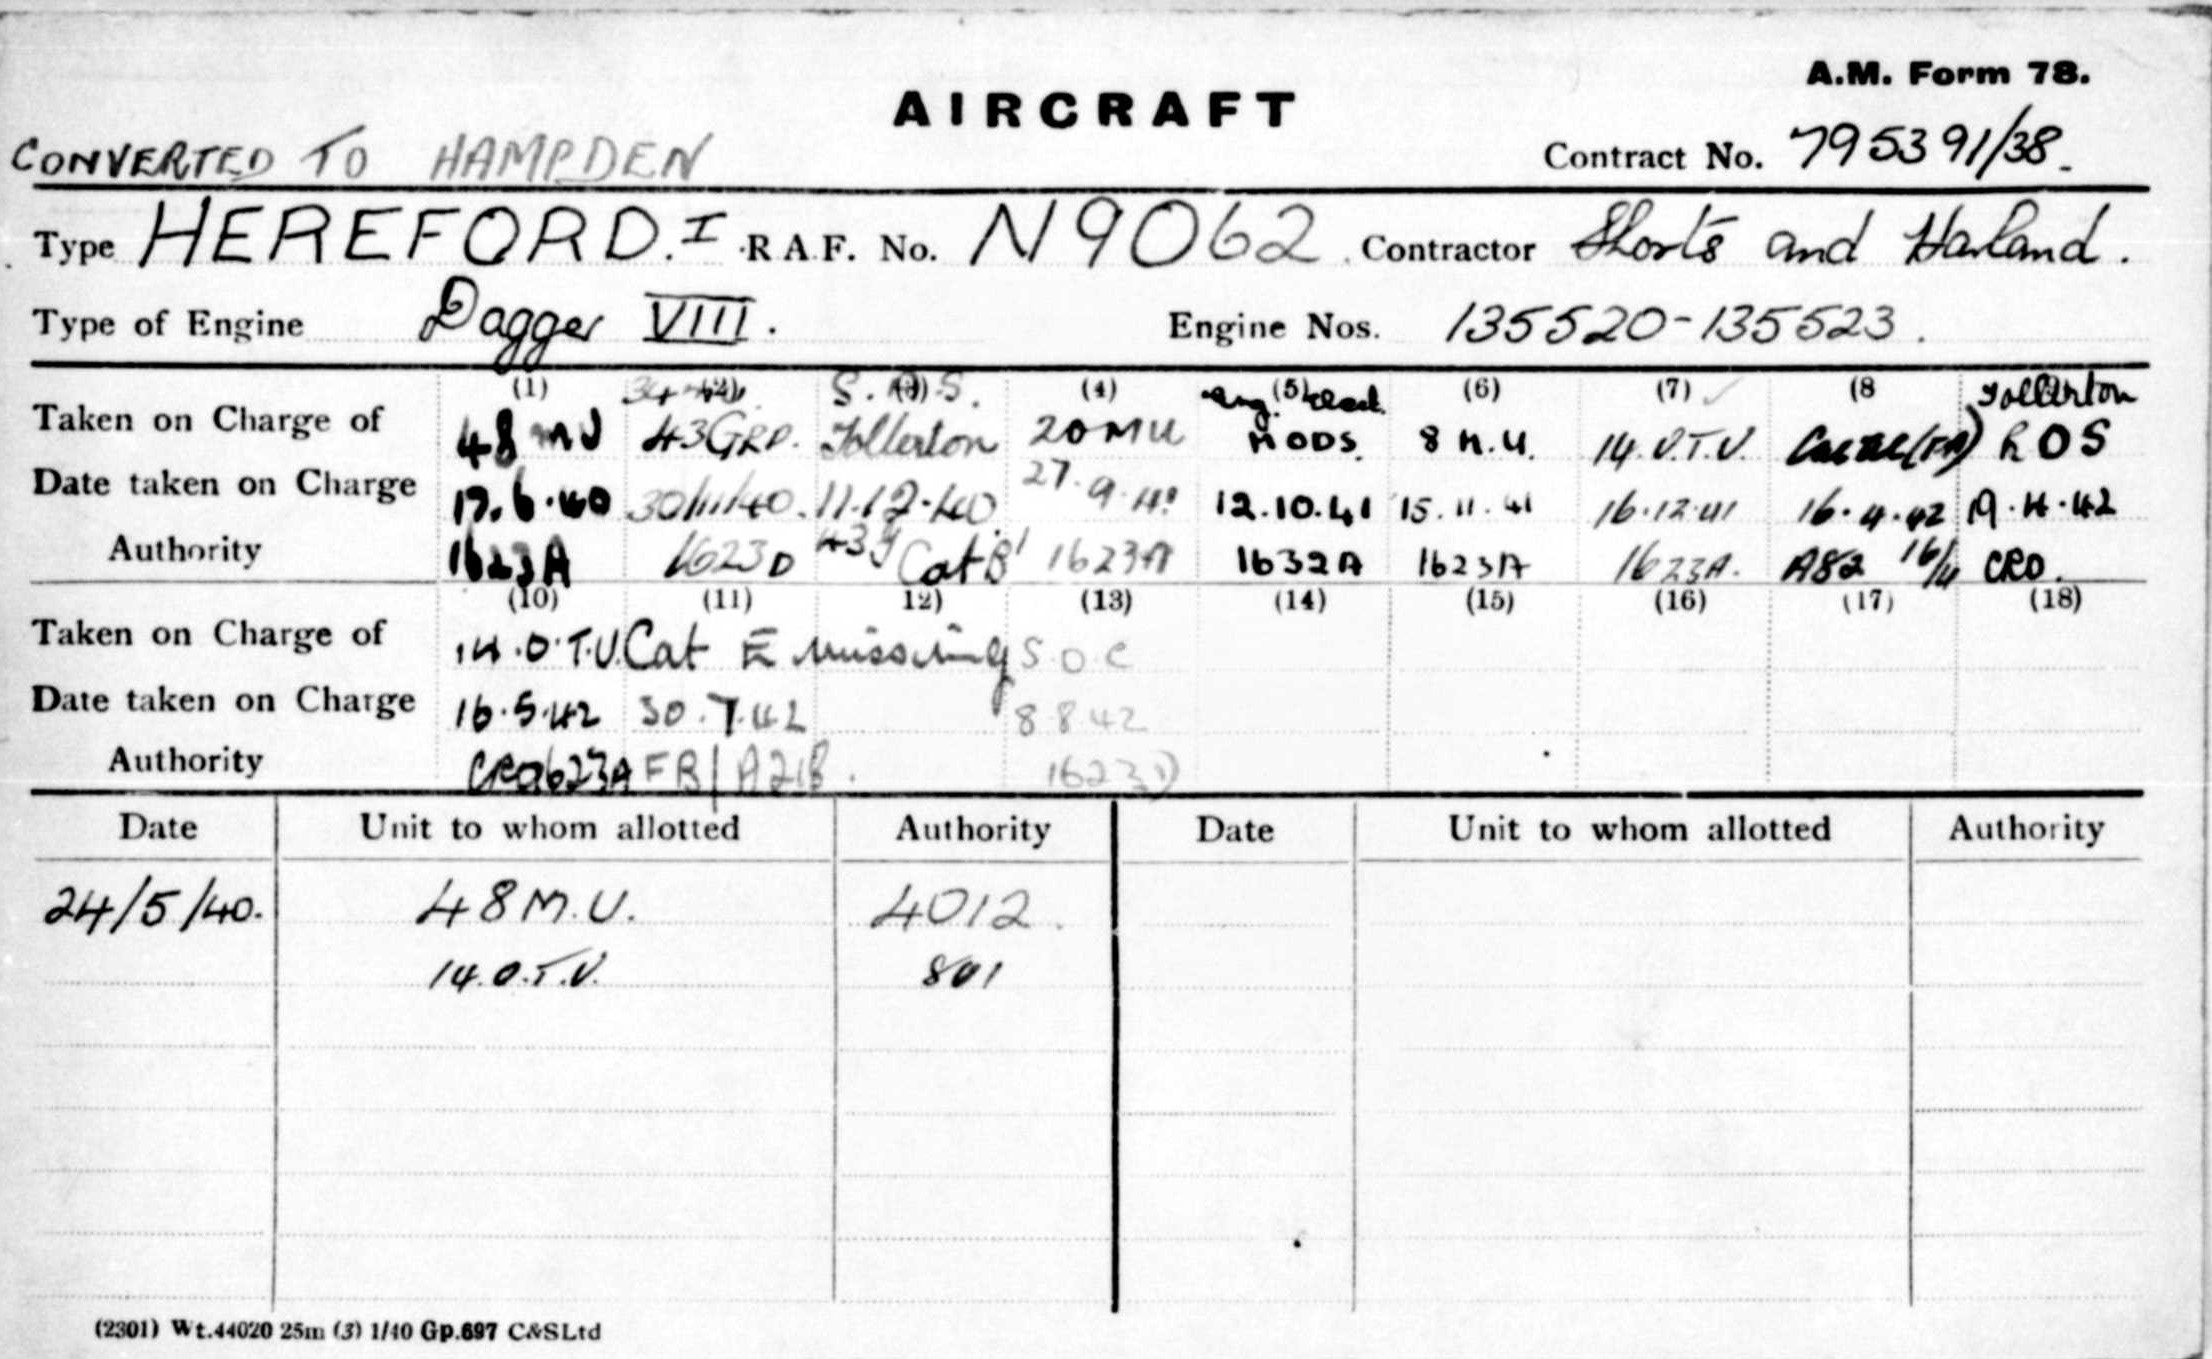 A.M. Form 78.
AIRCRAFT
CONVERTED TO HAMPDEN
Contract No. 795391/38
Type HEREFORD. I R.A.F. No. N9062 Contractor Shorts and Harland.
Type of Engine Dagger VIII. Engine Nos. 135520-135523.
(1) S.A.S. (4) (5) (6) (7) (8 Tollerton
Taken on Charge of 48 MU 43 GRP. Tollerton 20 MU MODS. 8 M.U. 14.O.T.U. ROS
Date taken on Charge 17.6.40 30/11/40. 11.12.40 27.9.41 12.10.41 15.11.41 16.12.41 16.4.42 19.4.42
Authority 1623A 1623D 43G Cat B 1623A 1632A 1623A 1623A. A82 16/4 CRO.
(10) (11) 12) (13) (14) (15) (16) (17) (18)
Taken on Charge of 14.O.T.U. Cat E missing S O C
Date taken on Charge 16.5.42 30.7.42 8.8.42
Authority 1623A FB/A21B. 1623D
Date Unit to whom allotted Authority Date Unit to whom allotted Authority
24/5/40. 48 M.U. 4012.
14.O.T.U. 801
(2301) Wt.44020 25m (3) 1/40 Gp.697 C&SLtd